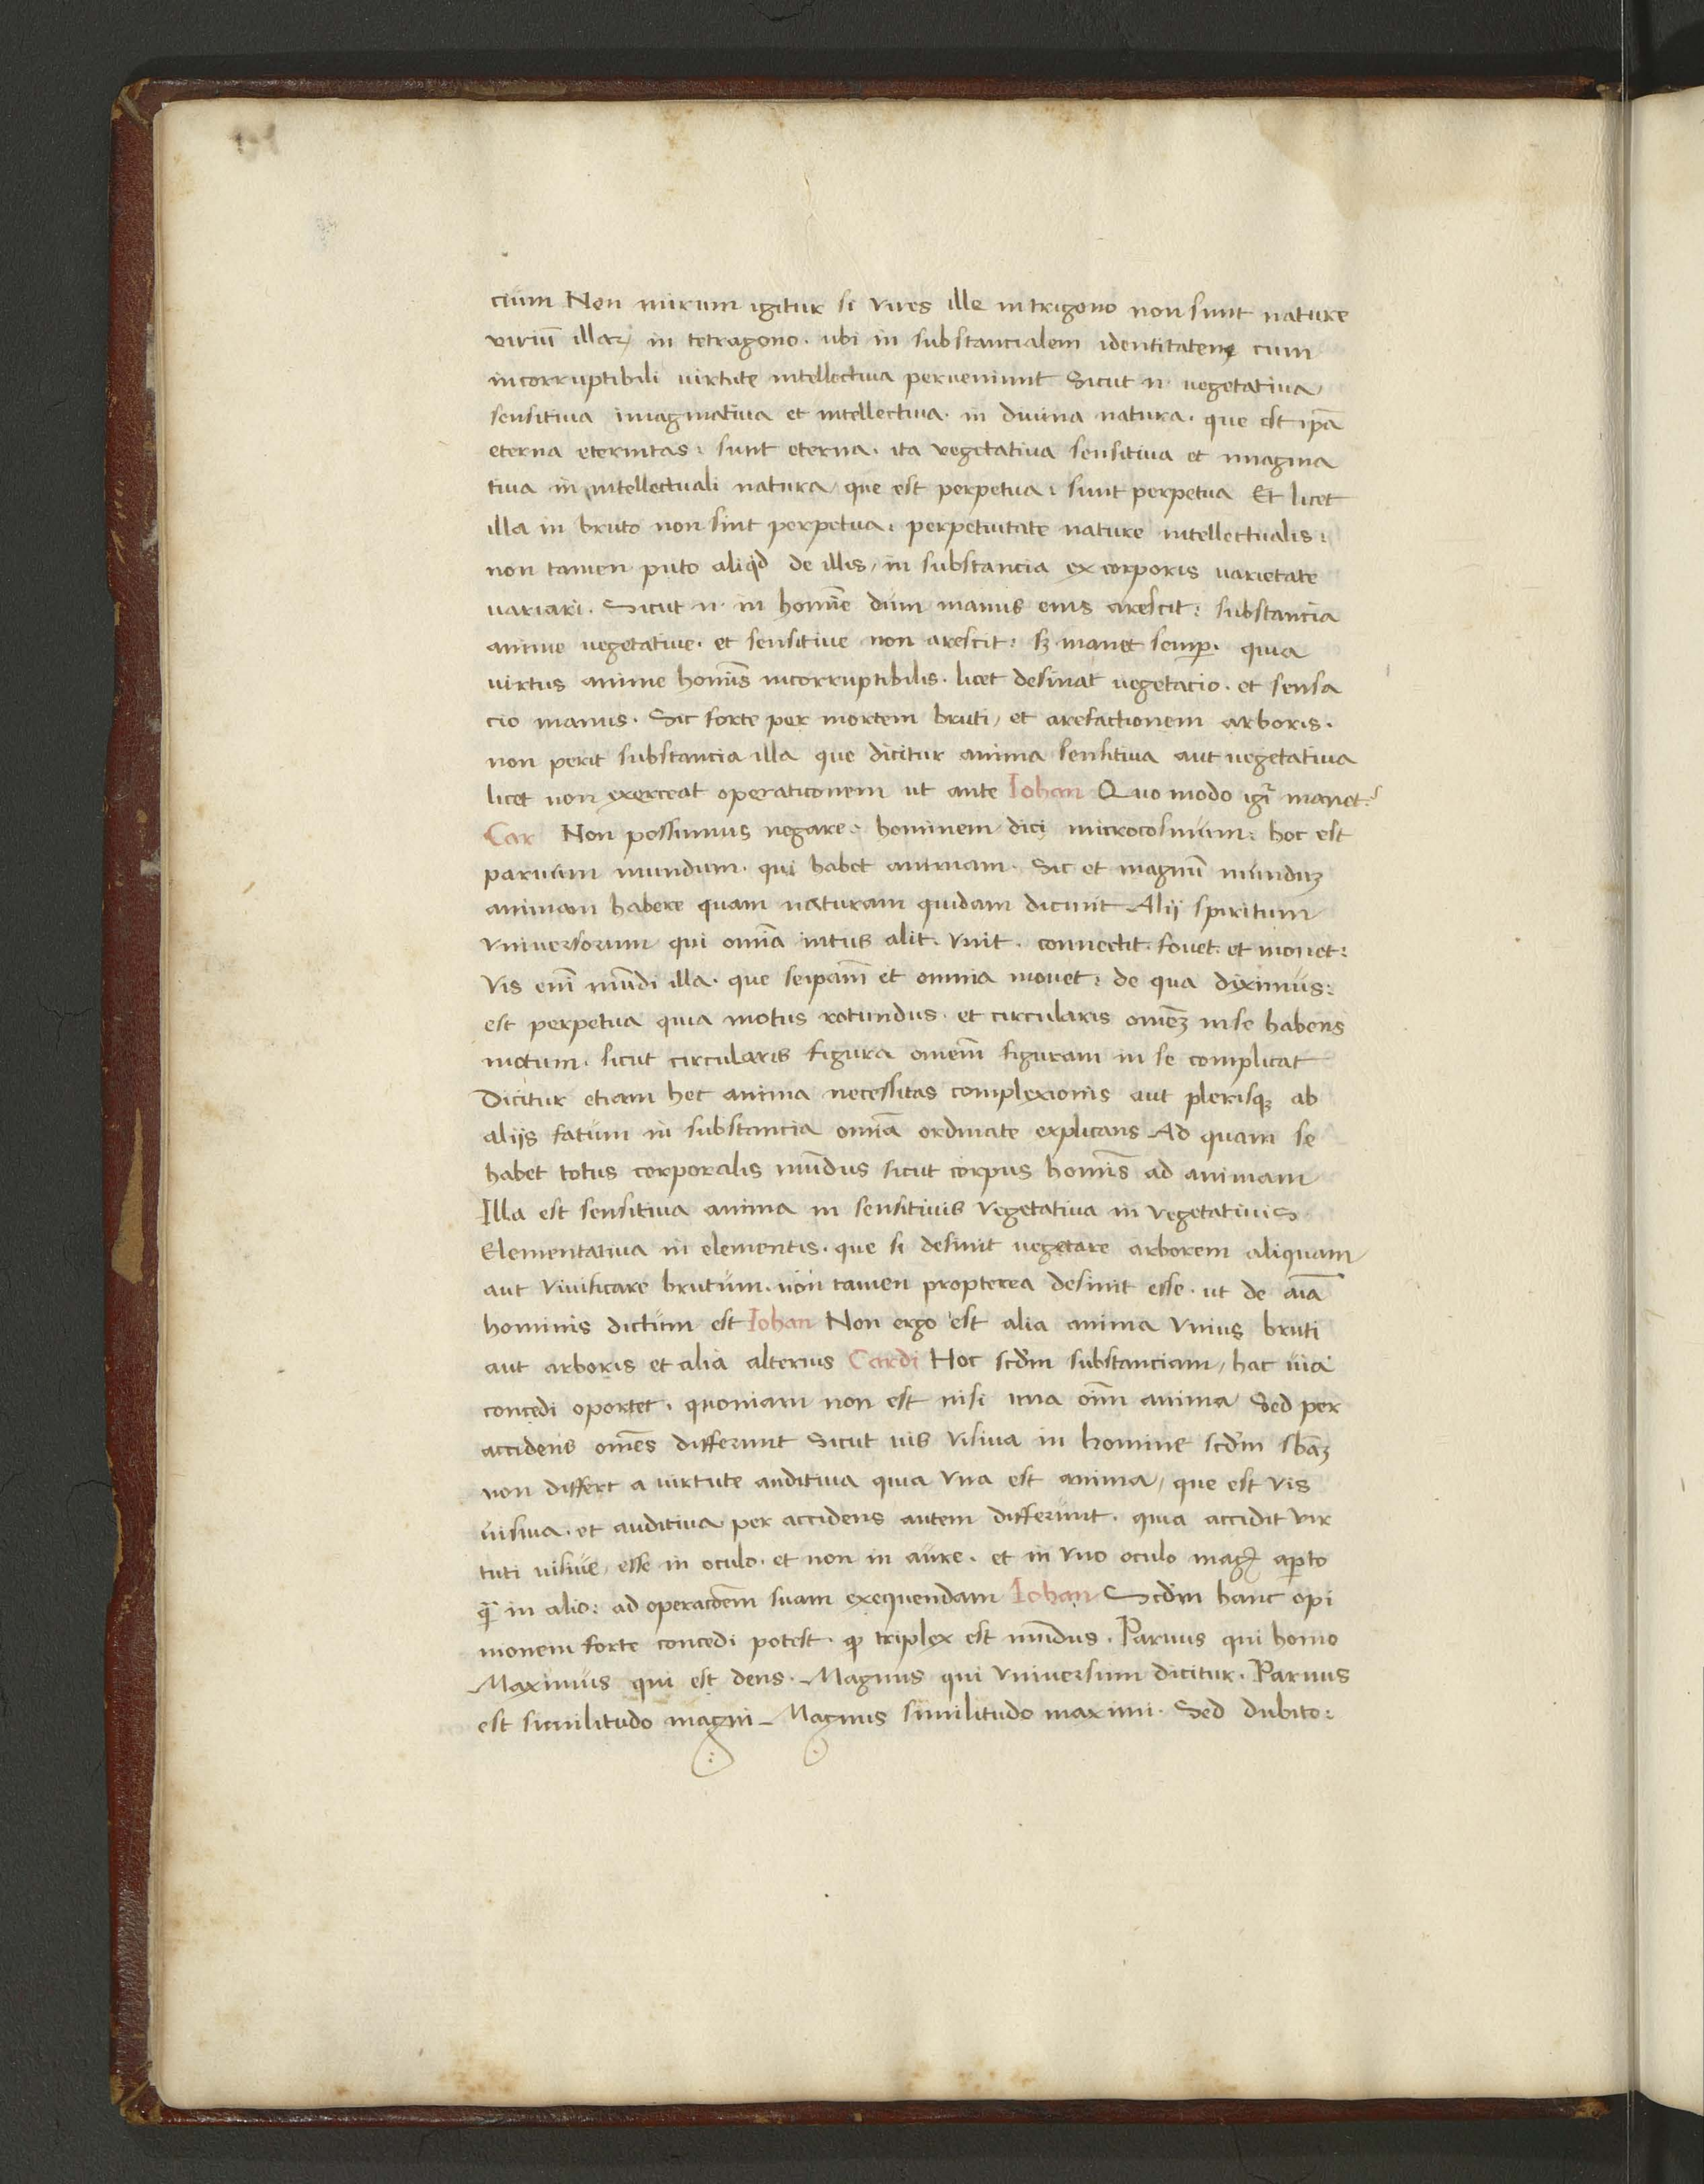 cium Non mirum igitur si vires ille in trigono non sunt nature
viriū illaꝝ in tetragono · ubi in substancialem identitatem cum
incorruptibili virtute intellectiva perveniunt Sicut n· vegetativa
sensitiva imaginativa et intellectiva · in divina natura · que est ip̄a
eterna eternitas : sunt eterna · ita vegetativa sensitiva et imagina
tiva in intellectuali natura que est perpetua : sunt perpetua Et licet
illa in bruto non sint perpetua : perpetuitate nature intellectualis :
non tamen puto aliqd de illis / in substancia ex corporis varietate
variari · Sicut n· in homīe dum manus eius arescit : substancia
anime vegetative · et sensitive non arescit : sꝫ manet semꝑ · quia
virtus anime homīs incorruptibilis · licet desinat vegetacio · et sensa
cio manus · Sic forte per mortem bruti / et arefactionem arboris ·
non perit substancia illa que dicitur anima sensitiva aut vegetativa
licet non exerceat operationem ut ante Iohan Quo modo igr̄ manet ?
Car Non possumus negare · hominem dici microcosmum : hoc est
parvum mundum · qui habet animam · Sic et magnū munduꝫ
animam habere quam naturam quidam dicunt Alij spiritum
vniversorum qui omīa intus alit · vnit · connectit · fovet · et movet :
Vis em̄ mūdi illa · que seipam̄ et omnia movet : de qua diximus :
est perpetua quia motus rotundus · et circularis omeꝫ in se habens
motum · sicut circularis figura omem̄ figuram in se complicat
Dicitur etiam hec anima necessitas complexionis aut plerisqꝫ ab
aliis fatum in substancia omīa ordinate explicans Ad quam se
habet totus corporalis mūdus sicut corpus homīs ad animam
Illa est sensitiva anima in sensitivis vegetativa in vegetativis
Elementativa in elementis · que si desinit vegetare arborem aliquam
aut vivificare brutum · non tamen propterea desinit esse · ut de aīa
hominis dictum est Iohan Non ergo est alia anima vnius bruti
aut arboris et alia alterius Cardi Hoc scdm̄ substanciam / hac via
concedi oportet · quoniam non est nisi una oīm anima Sed per
accidens omēs differunt Sicut vis visiva in homine scdm̄ sbāꝫ
non differt a virtute auditiva quia vna est anima / que est vis
visiva · et auditiva per accidens autem differunt · quia accidit vir
tuti visive / esse in oculo · et non in aure · et in vno oculo magꝭ aꝑto
qᷓ in alio : ad operacōem suam exequendam Iohan Scdm̄ hanc opi
nionem forte concedi potest · ꝙ triplex est mūdus · Parvus qui homo
Maximus qui est deus · Magnus qui vniversum dicitur · Parvus
est similitudo magni Magnus similitudo maximi · Sed dubito :